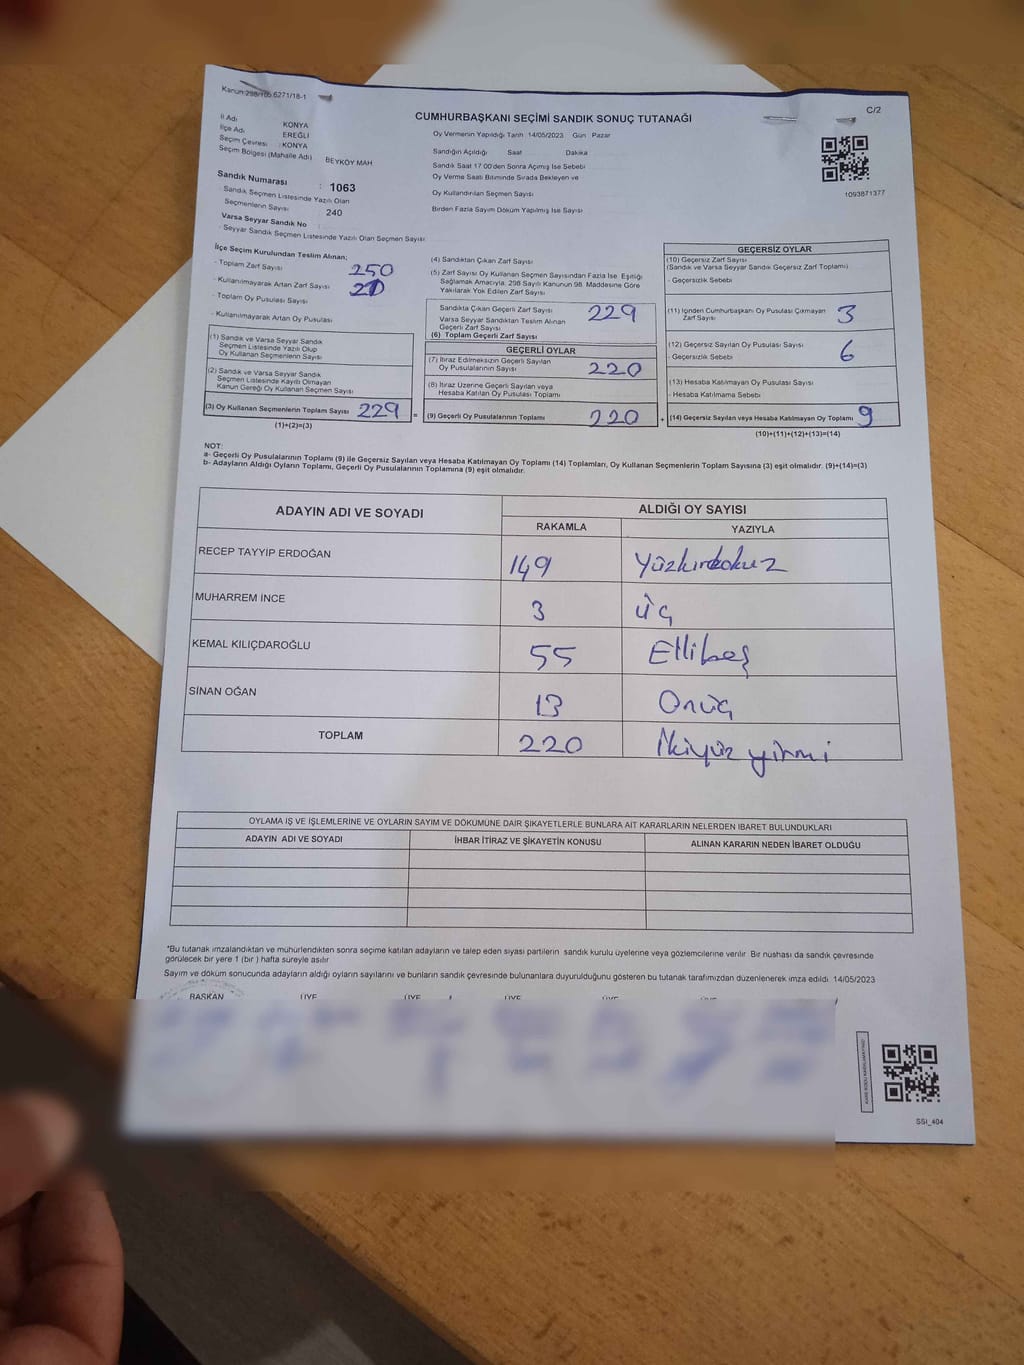 Kanun:298/165 6271/18-1
C/2
CUMHURBAŞKANI SEÇİMİ SANDIK SONUÇ TUTANAĞI
İl Adı KONYA
İlçe Adı EREĞLİ
Seçim Çevresi : KONYA
Seçim Bölgesi (Mahalle Adı) BEYKÖY MAH
Sandık Numarası : 1063
Sandık Seçmen Listesinde Yazılı Olan
Seçmenlerin Sayısı 240
Varsa Seyyar Sandık No
- Seyyar Sandık Seçmen Listesinde Yazılı Olan Seçmen Sayısı
Oy Vermenin Yapıldığı Tarih 14/05/2023 Gün Pazar
Sandığın Açıldığı Saat Dakika
Sandık Saat 17.00'den Sonra Açımış İse Sebebi
Oy Verme Saati Bitiminde Sırada Bekleyen ve
Oy Kullandırılan Seçmen Sayısı
Birden Fazla Sayım Döküm Yapılmış İse Sayısı
1093871377
İlçe Seçim Kurulundan Teslim Alınan;
- Toplam Zarf Sayısı 250
- Kullanılmayarak Artan Zarf Sayısı
- Toplam Oy Pusulası Sayısı
- Kullanılmayarak Artan Oy Pusulası
(1) Sandık ve Varsa Seyyar Sandık
Seçmen Listesinde Yazılı Olup
Oy Kullanan Seçmenlerin Sayısı
(2) Sandık ve Varsa Seyyar Sandık
Seçmen Listesinde Kayıtlı Olmayan
Kanun Gereği Oy Kullanan Seçmen Sayısı
(3) Oy Kullanan Seçmenlerin Toplam Sayısı 229 =
(1)+(2)=(3)
(4) Sandıktan Çıkan Zarf Sayısı
(5) Zarf Sayısı Oy Kullanan Seçmen Sayısından Fazla İse, Eşitliği
Sağlamak Amacıyla, 298 Sayılı Kanunun 98. Maddesine Göre
Yakılarak Yok Edilen Zarf Sayısı
Sandıkta Çıkan Geçerli Zarf Sayısı 229
Varsa Seyyar Sandıktan Teslim Alınan
Geçerli Zarf Sayısı
(6) Toplam Geçerli Zarf Sayısı
GEÇERLİ OYLAR
(7) İtiraz Edilmeksizin Geçerli Sayılan
Oy Pusulalarının Sayısı 220
(8) İtiraz Üzerine Geçerli Sayılan veya
Hesaba Katılan Oy Pusulası Toplamı
(9) Geçerli Oy Pusulalarının Toplamı 220 +
GEÇERSİZ OYLAR
(10) Geçersiz Zarf Sayısı
(Sandık ve Varsa Seyyar Sandık Geçersiz Zarf Toplamı)
- Geçersizlik Sebebi
(11) İçinden Cumhurbaşkanı Oy Pusulası Çıkmayan
Zarf Sayısı 3
(12) Geçersiz Sayılan Oy Pusulası Sayısı 6
- Geçersizlik Sebebi
(13) Hesaba Katılmayan Oy Pusulası Sayısı
- Hesaba Katılmama Sebebi
(14) Geçersiz Sayılan veya Hesaba Katılmayan Oy Toplamı 9
(10)+(11)+(12)+(13)=(14)
NOT:
a- Geçerli Oy Pusulalarının Toplamı (9) ile Geçersiz Sayılan veya Hesaba Katılmayan Oy Toplamı (14) Toplamları, Oy Kullanan Seçmenlerin Toplam Sayısına (3) eşit olmalıdır. (9)+(14)=(3)
b- Adayların Aldığı Oyların Toplamı, Geçerli Oy Pusulalarının Toplamına (9) eşit olmalıdır.
ADAYIN ADI VE SOYADI ALDIĞI OY SAYISI
RAKAMLA YAZIYLA
RECEP TAYYIP ERDOĞAN 149 Yüzkırkdokuz
MUHARREM İNCE 3 üç
KEMAL KILIÇDAROĞLU 55 Ellibeş
SİNAN OĞAN 13 Onüç
TOPLAM 220 İkiyüz yirmi
OYLAMA İŞ VE İŞLEMLERİNE VE OYLARIN SAYIM VE DÖKÜMÜNE DAİR ŞİKAYETLERLE BUNLARA AİT KARARLARIN NELERDEN İBARET BULUNDUKLARI
ADAYIN ADI VE SOYADI İHBAR İTİRAZ VE ŞİKAYETİN KONUSU ALINAN KARARIN NEDEN İBARET OLDUĞU
*Bu tutanak imzalandıktan ve mühürlendikten sonra seçime katılan adayların ve talep eden siyasi partilerin sandık kurulu üyelerine veya gözlemcilerine verilir. Bir nüshası da sandık çevresinde
görülecek bir yere 1 (bir) hafta süreyle asılır
Sayım ve döküm sonucunda adayların aldığı oyların sayılarını ve bunların sandık çevresinde bulunanlara duyurulduğunu gösteren bu tutanak tarafımızdan düzenlenerek imza edildi. 14/05/2023
BAŞKAN ÜYE ÜYE ÜYE ÜYE ÜYE
SSI_404